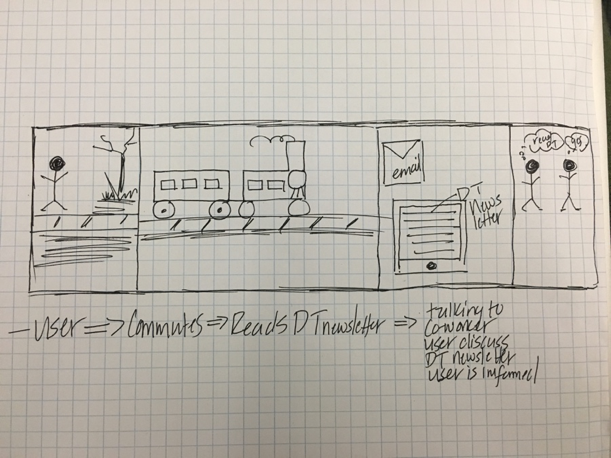 email
DT
News
letter
read
DT
- user => Commutes => Reads DT newsletter => talking to
coworker
user discuss
DT newsletter
user is informed